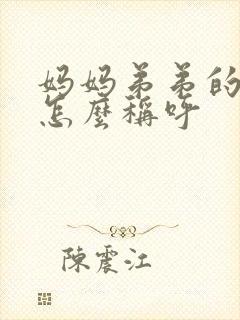 妈妈弟弟的
怎麼稱呼
陳震江